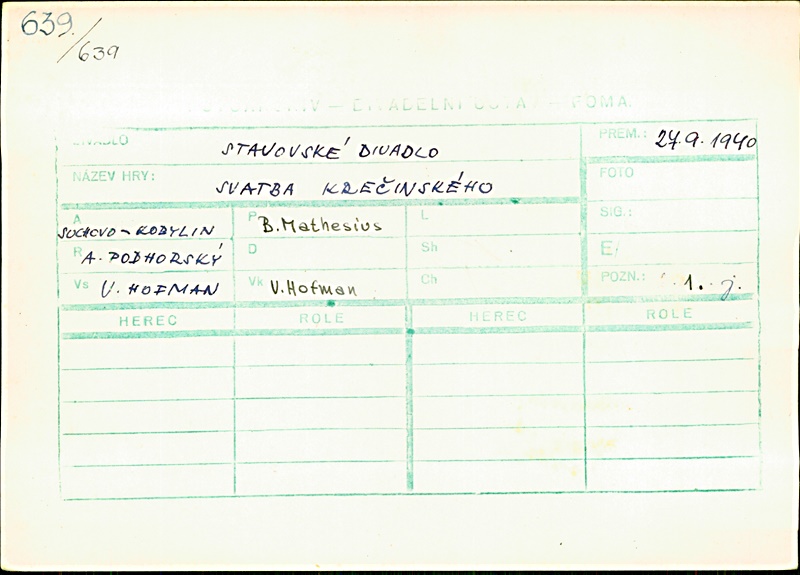 639/639
FOTOARCHIV — DIVADELNÍ ÚSTAV — FOMA
DIVADLO STAVOVSKÉ DIVADLO PREM.: 27.9.1940
NÁZEV HRY: SVATBA KREČINSKÉHO FOTO
A SUCHOVO-KOBYLIN P B.Mathesius L SIG.:
R A. PODHORSKÝ D Sh E/
Vs V. HOFMAN Vk V.Hofman Ch POZN.: 1. j.
HEREC ROLE HEREC ROLE